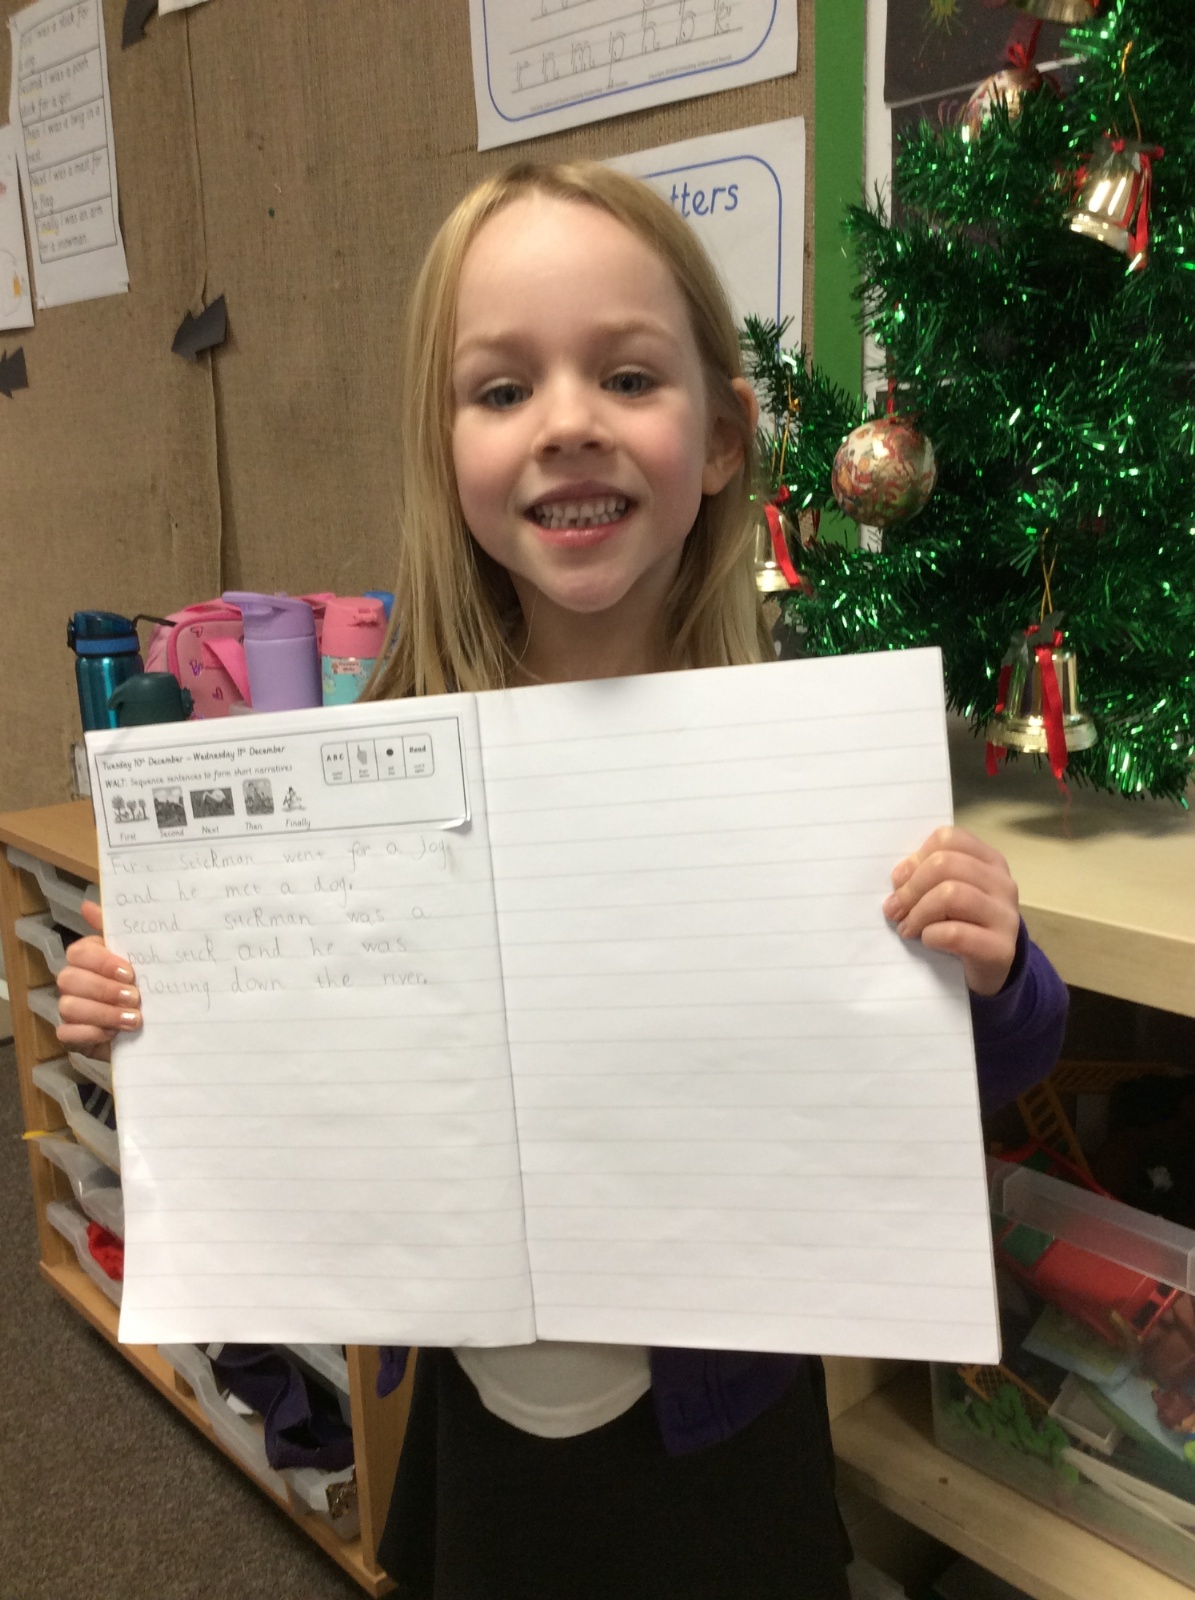 First I was a stick for
a dog.
Second I was a pooh
stick for a girl.
Then I was a twig in a
nest.
Next I was a mast for
a flag.
Finally I was an arm
for a snowman.
r n m p h b k
tters
Tuesday 10th December – Wednesday 11th December
WALT: Sequence sentences to form short narratives
ABC
Read
First Second Next Then Finally
Stickman went for a Jog
and he met a dog.
second stickman was a
pooh stick and he was
down the river.